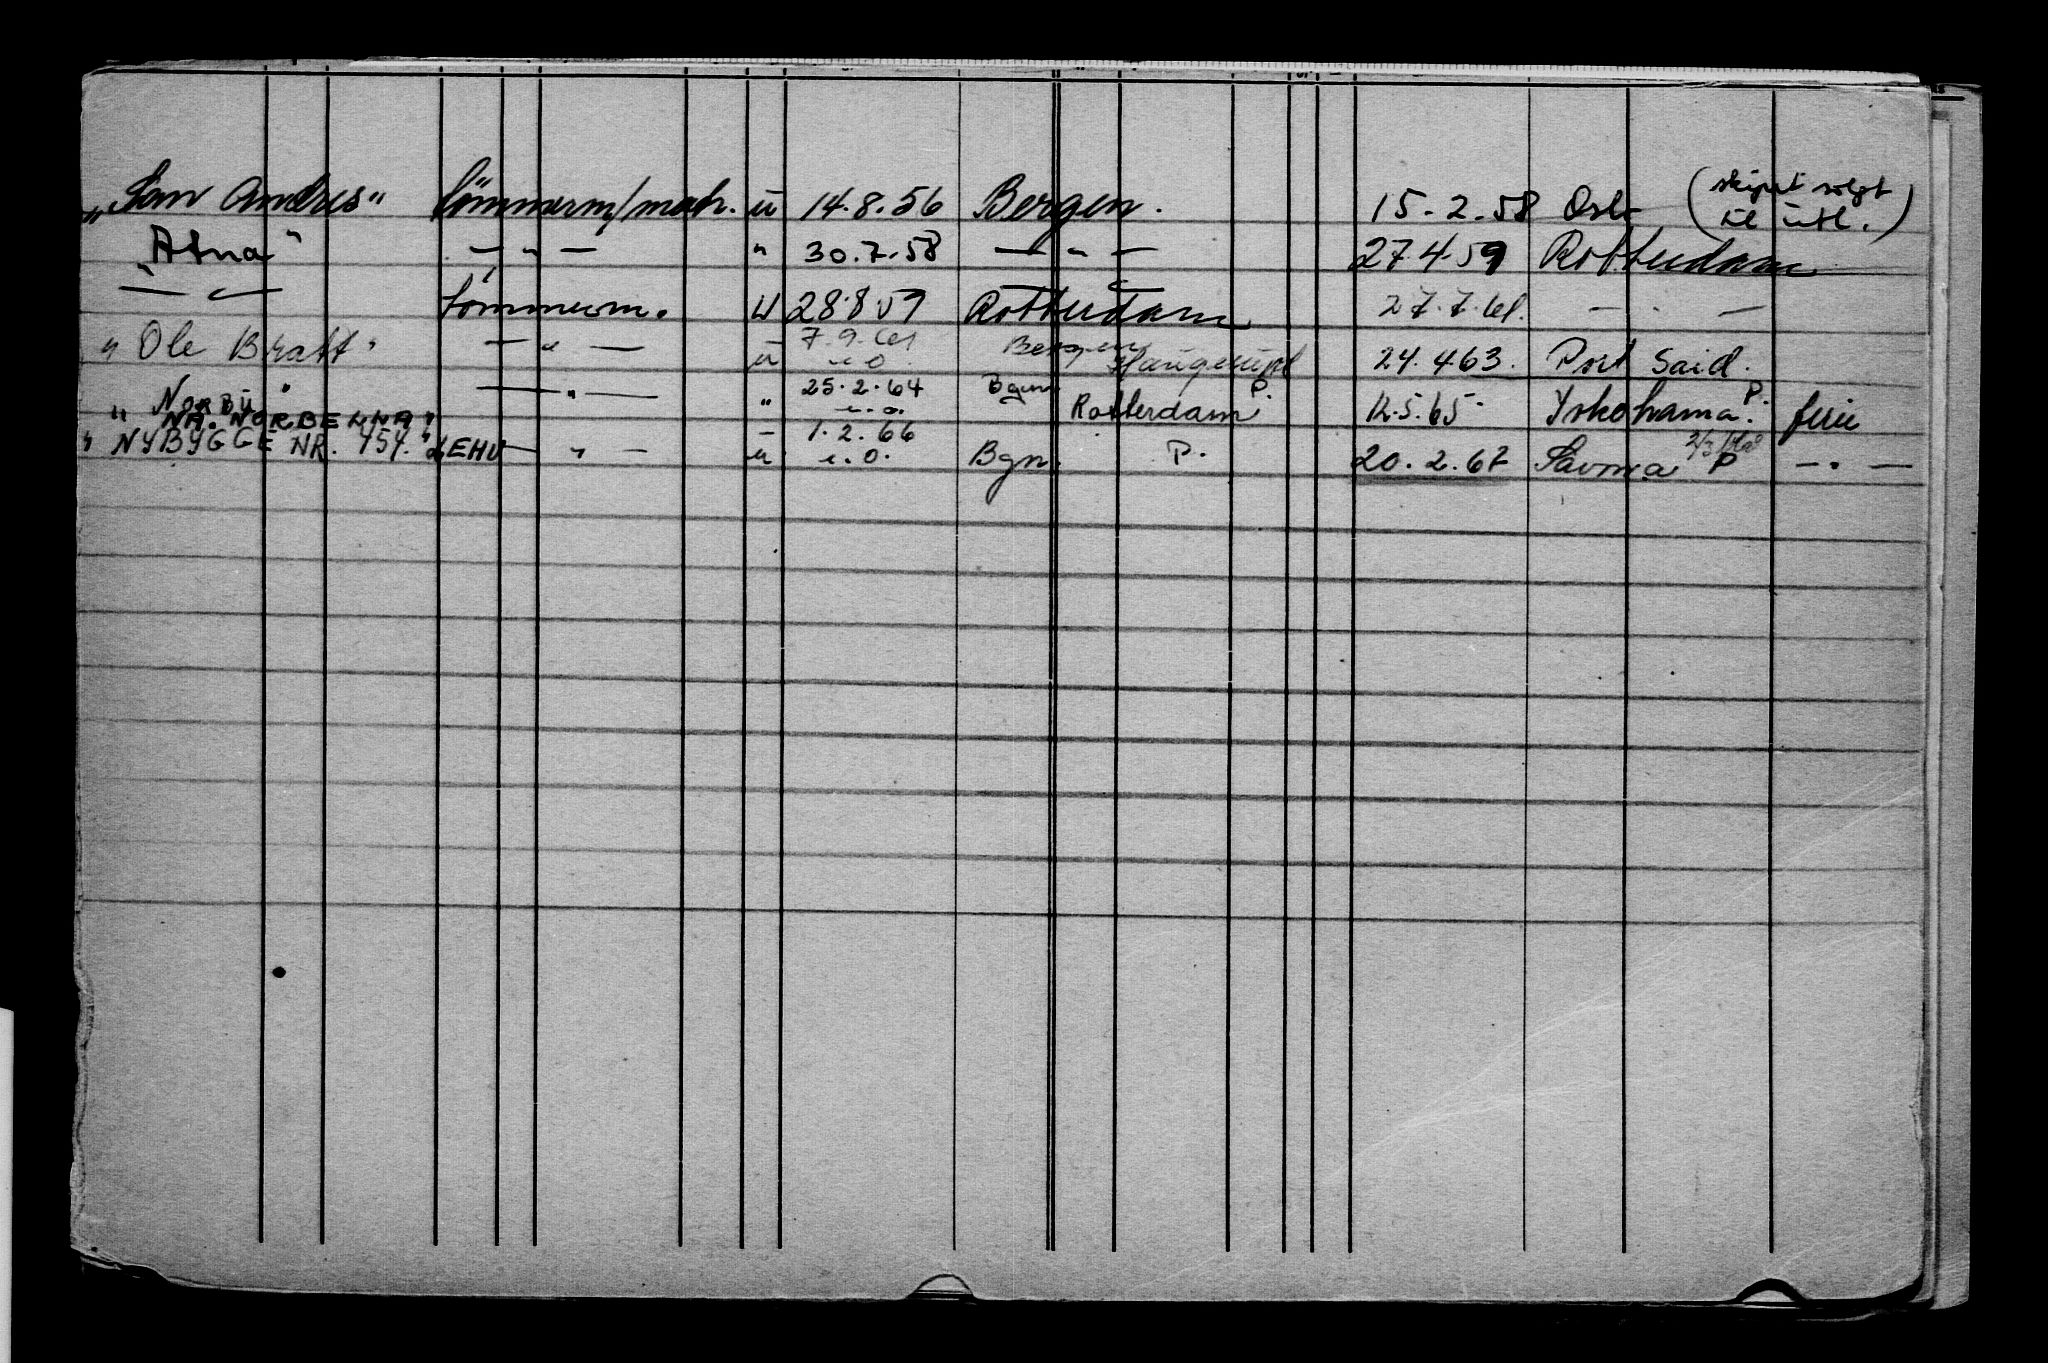 "San Andres" tömmerm/matr. u 14.8.56 Bergen. 15.2.58 Oslo (skipet solgt til utl.)
"Atna" — " — " 30.7.58 — " — 27.4.59 Rotterdam
— " — tömmerm. u 28.8.59 Rotterdam 27.7.61. — . —
"Ole Bratt" — " — u 7.9.61 u.o. Bergen Haugesund 24.4.63. Port Said.
"Norbu" — " — " 25.2.64 u.o. Bgn. Rotterdam P. 12.5.65. Yokohama P. ferie
NÅ. NORBELLA"
"NYBYGGE NR. 454." — " — u 1.2.66 u.o. Bgn. P. 20.2.67 P — " —